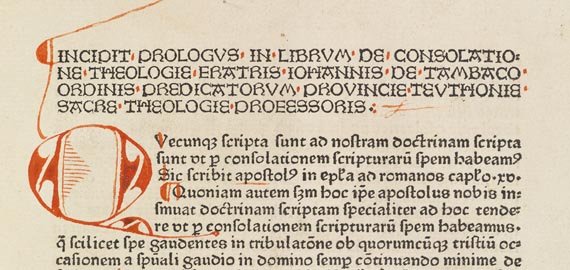 INCIPIT PROLOGVS IN LIBRVM DE CONSOLATIO:
NE THEOLOGIE FRATRIS IOHANNIS DE TAMBACO
ORDINIS PREDICATORVM PROVINCIE TEVTHONIE
SACRE THEOLOGIE PROFESSORIS.:
QVecunqꝫ scripta sunt ad nostram doctrinam scripta
sunt vt ꝑ consolationem scripturarū spem habeamꝰ
Sic scribit apostolꝰ in epl̄a ad romanos capl̄o.xv.
Quoniam autem sꝫm hoc ip̄e apostolus nobis in:
sinuat doctrinam scriptam specialiter ad hoc tende:
re vt ꝑ consolationem scripturarū spem habeamus.
q̄ scilicet spe gaudentes in tribulatōne ob quorumcūqꝫ tristiū oc:
casionem a sp̄uali gaudio in domino semꝑ cōtinuando minime de